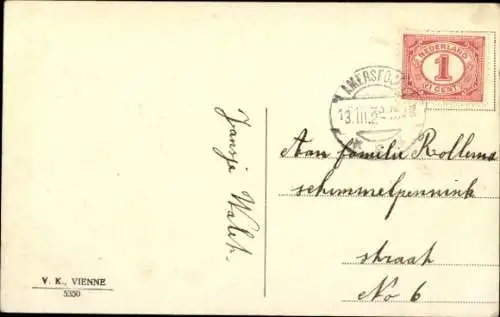 NEDERLAND
1
CENT
AMERSFO
13.III.2
Jansje Walet.
Aan familie Rollema
schimmelpennink
straat
No 6
V. K., VIENNE
5350